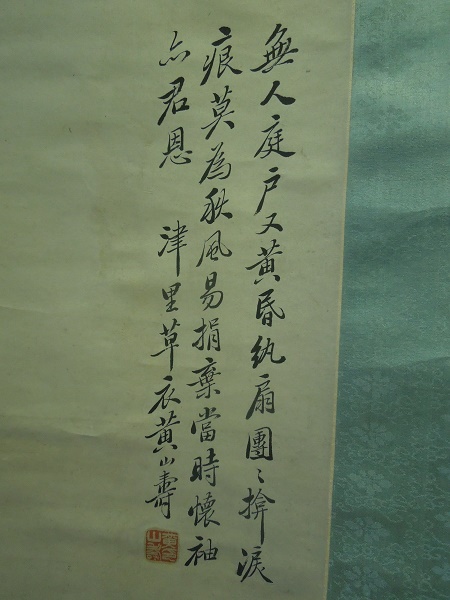 無人庭戶又黃昏紈扇團〻揜淚
痕莫為秋風易捐棄當時懷袖
亦君恩
津里草衣黃山壽